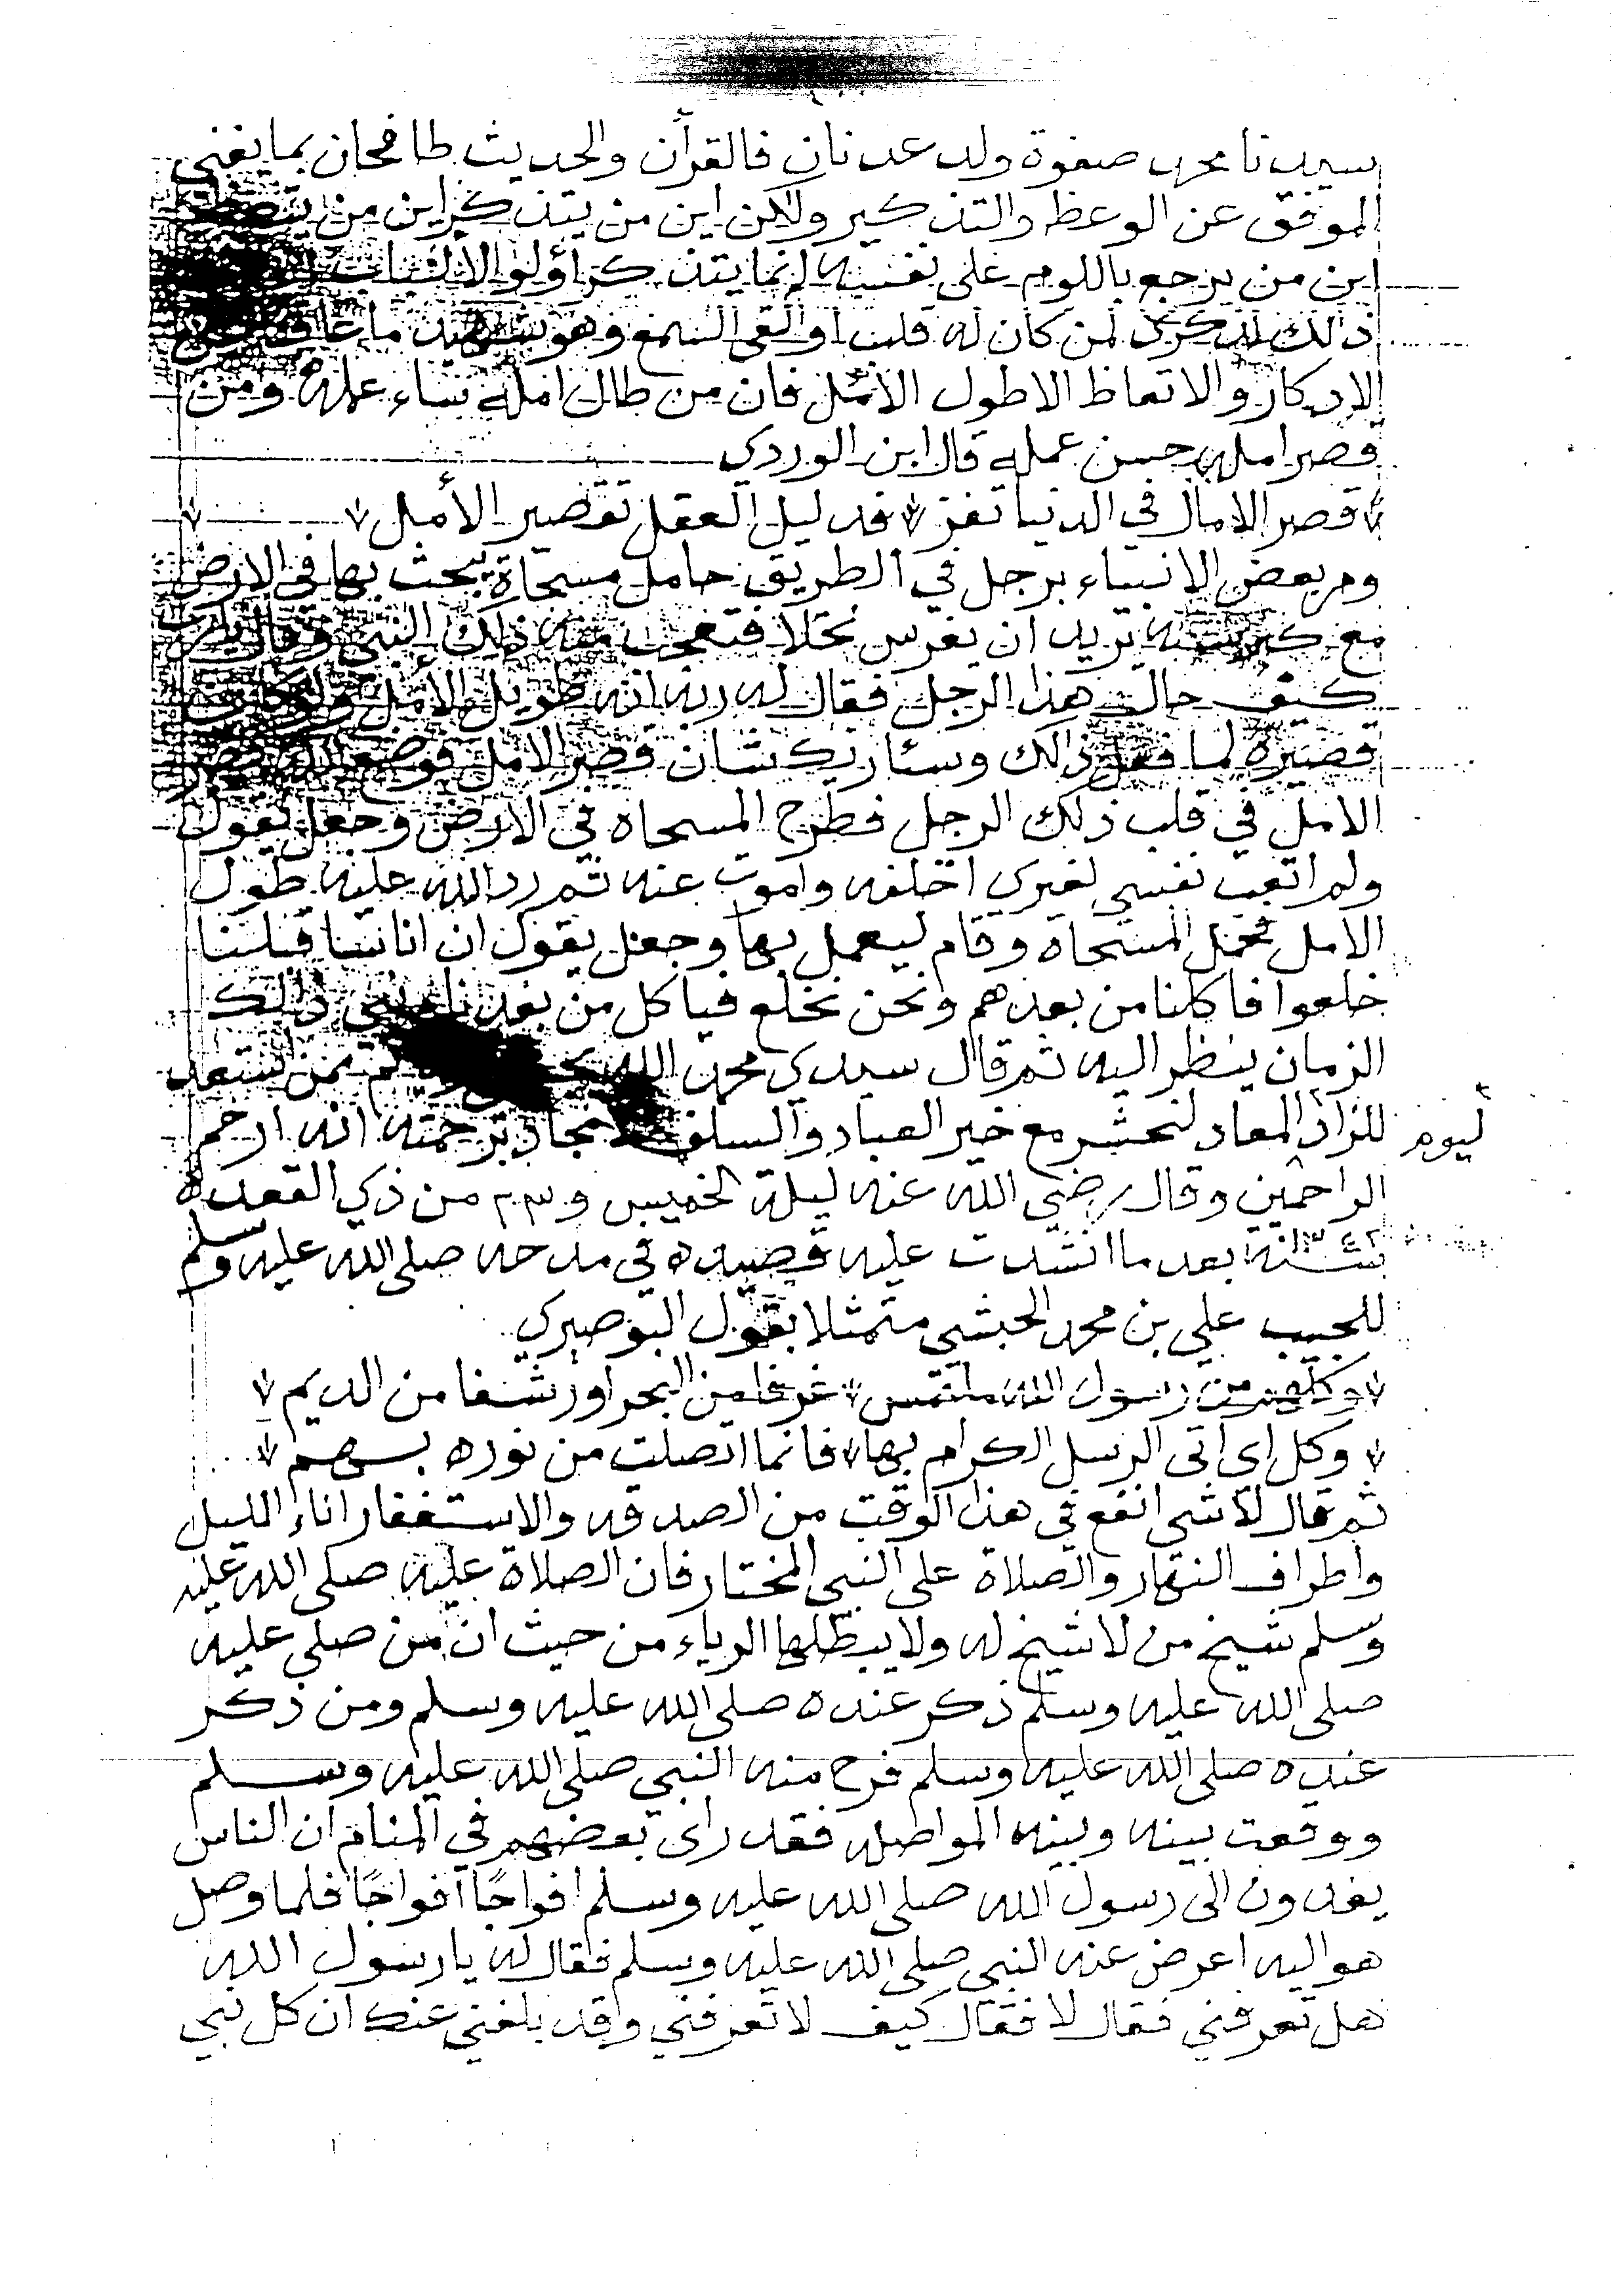 سيدنا محمد صفوة ولد عدنان فالقرآن والحديث طافحان بما يغني
الموفق عن الوعظ والتذكير ولاكن اين من يتذكر اين من
اين من يرجع باللوم على نفسه انما يتذكر اؤلوا الالباب
ذالك لذكرى لمن كان له قلب او القى السمع وهو شهيد ما عاق عن
الادكار والاتعاظ الا طول الأمل فان من طال امله ساء عمله ومن
قصر امله حسن عمله قال ابن الوردي
قصر الامال في الدنيا تفز فدليل العقل تقصير الأمل
ومر بعض الانبياء برجل في الطريق حامل مسحاة يبحث بها في الارض
مع كبر سنه يريد ان يغرس نخلا فتعجب منه ذلك النبي وقال يارب
كيف حال هذا الرجل فقال له ربه انه طويل الأمل ولو كان
قصيره لما فعل ذالك وسئاريك شان قصر الامل فوضع الله قصر
الامل في قلب ذلك الرجل فطرح المسحاه في الارض وجعل يقول
ولم اتعب نفسي لغيري اخلفه واموت عنه ثم رد الله عليه طول
الامل فحمل المسحاه وقام ليعمل بها وجعل يقول ان اناسا قبلنا
خلعوا فاكلنا من بعدهم ونحن نخلع فياكل من بعدنا ذالك
الزمان ينظر اليه ثم قال سيدي محمد الله ممن استعد
ليوم
للزاد المعاد لنحشر مع خير العباد والسلف الامجاد برحمته انه ارحم
الراحمين وقال رضي الله عنه ليلة الخميس و٢٣ من ذي القعده
سنة ١٣٤٢ بعد ما انشدت عليه قصيده في مدحه صلى الله عليه وسلم
للحبيب علي بن محمد الحبشي متمثلا بقول البوصيري
وكلهم من رسول الله ملتمس غرفا من البحر او رشفا من الديم
وكل اي اتى الرسل الكرام بها فانما اتصلت من نوره بهم
ثم قال لا شي انفع في هذا الوقت من الصدقه والاستغفار اناء الليل
واطراف النهار والصلاة على النبي المختار فان الصلاة عليه صلى الله عليه
وسلم شيخ من لا شيخ له ولا يبطلها الرياء من حيث ان من صلى عليه
صلى الله عليه وسلم ذكر عنده صلى الله عليه وسلم ومن ذكر
عنده صلى الله عليه وسلم فرح منه النبي صلى الله عليه وسلم
ووقعت بينه وبينه المواصله فقد راى بعضهم في المنام ان الناس
يغدون الى رسول الله صلى الله عليه وسلم افواجًا افواجًا فلما وصل
هو اليه اعرض عنه النبي صلى الله عليه وسلم فقال له يا رسول الله
هل تعرفني فقال لا فقال كيف لا تعرفني وقد بلغني عنك ان كل نبي